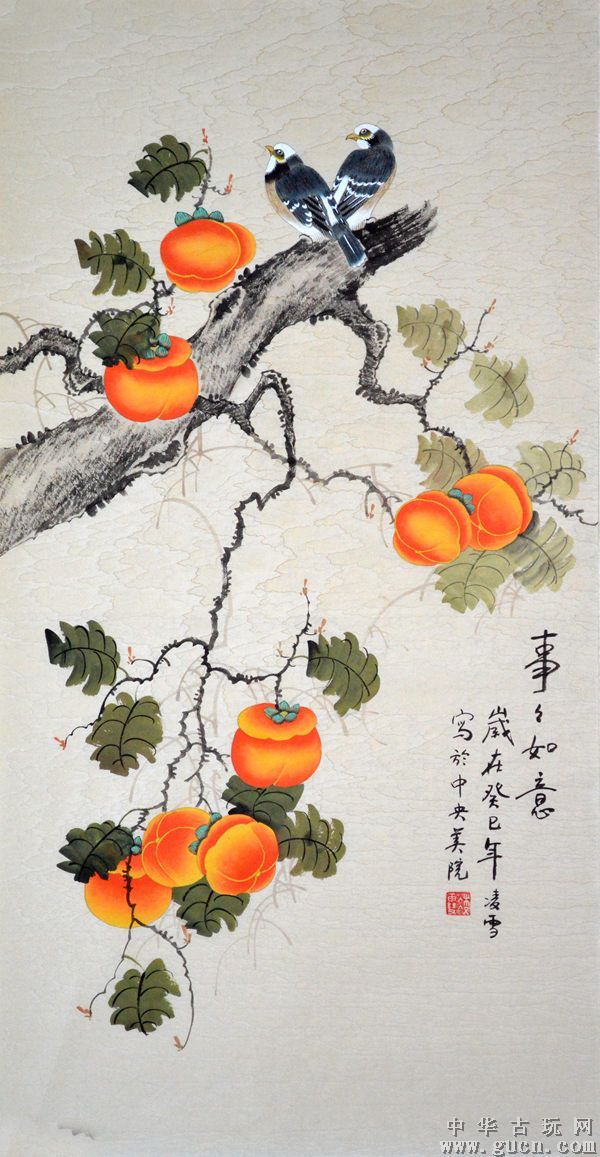 事々如意
歲在癸巳年凌雪
写於中央美院
中华古玩网
www.gucn.com